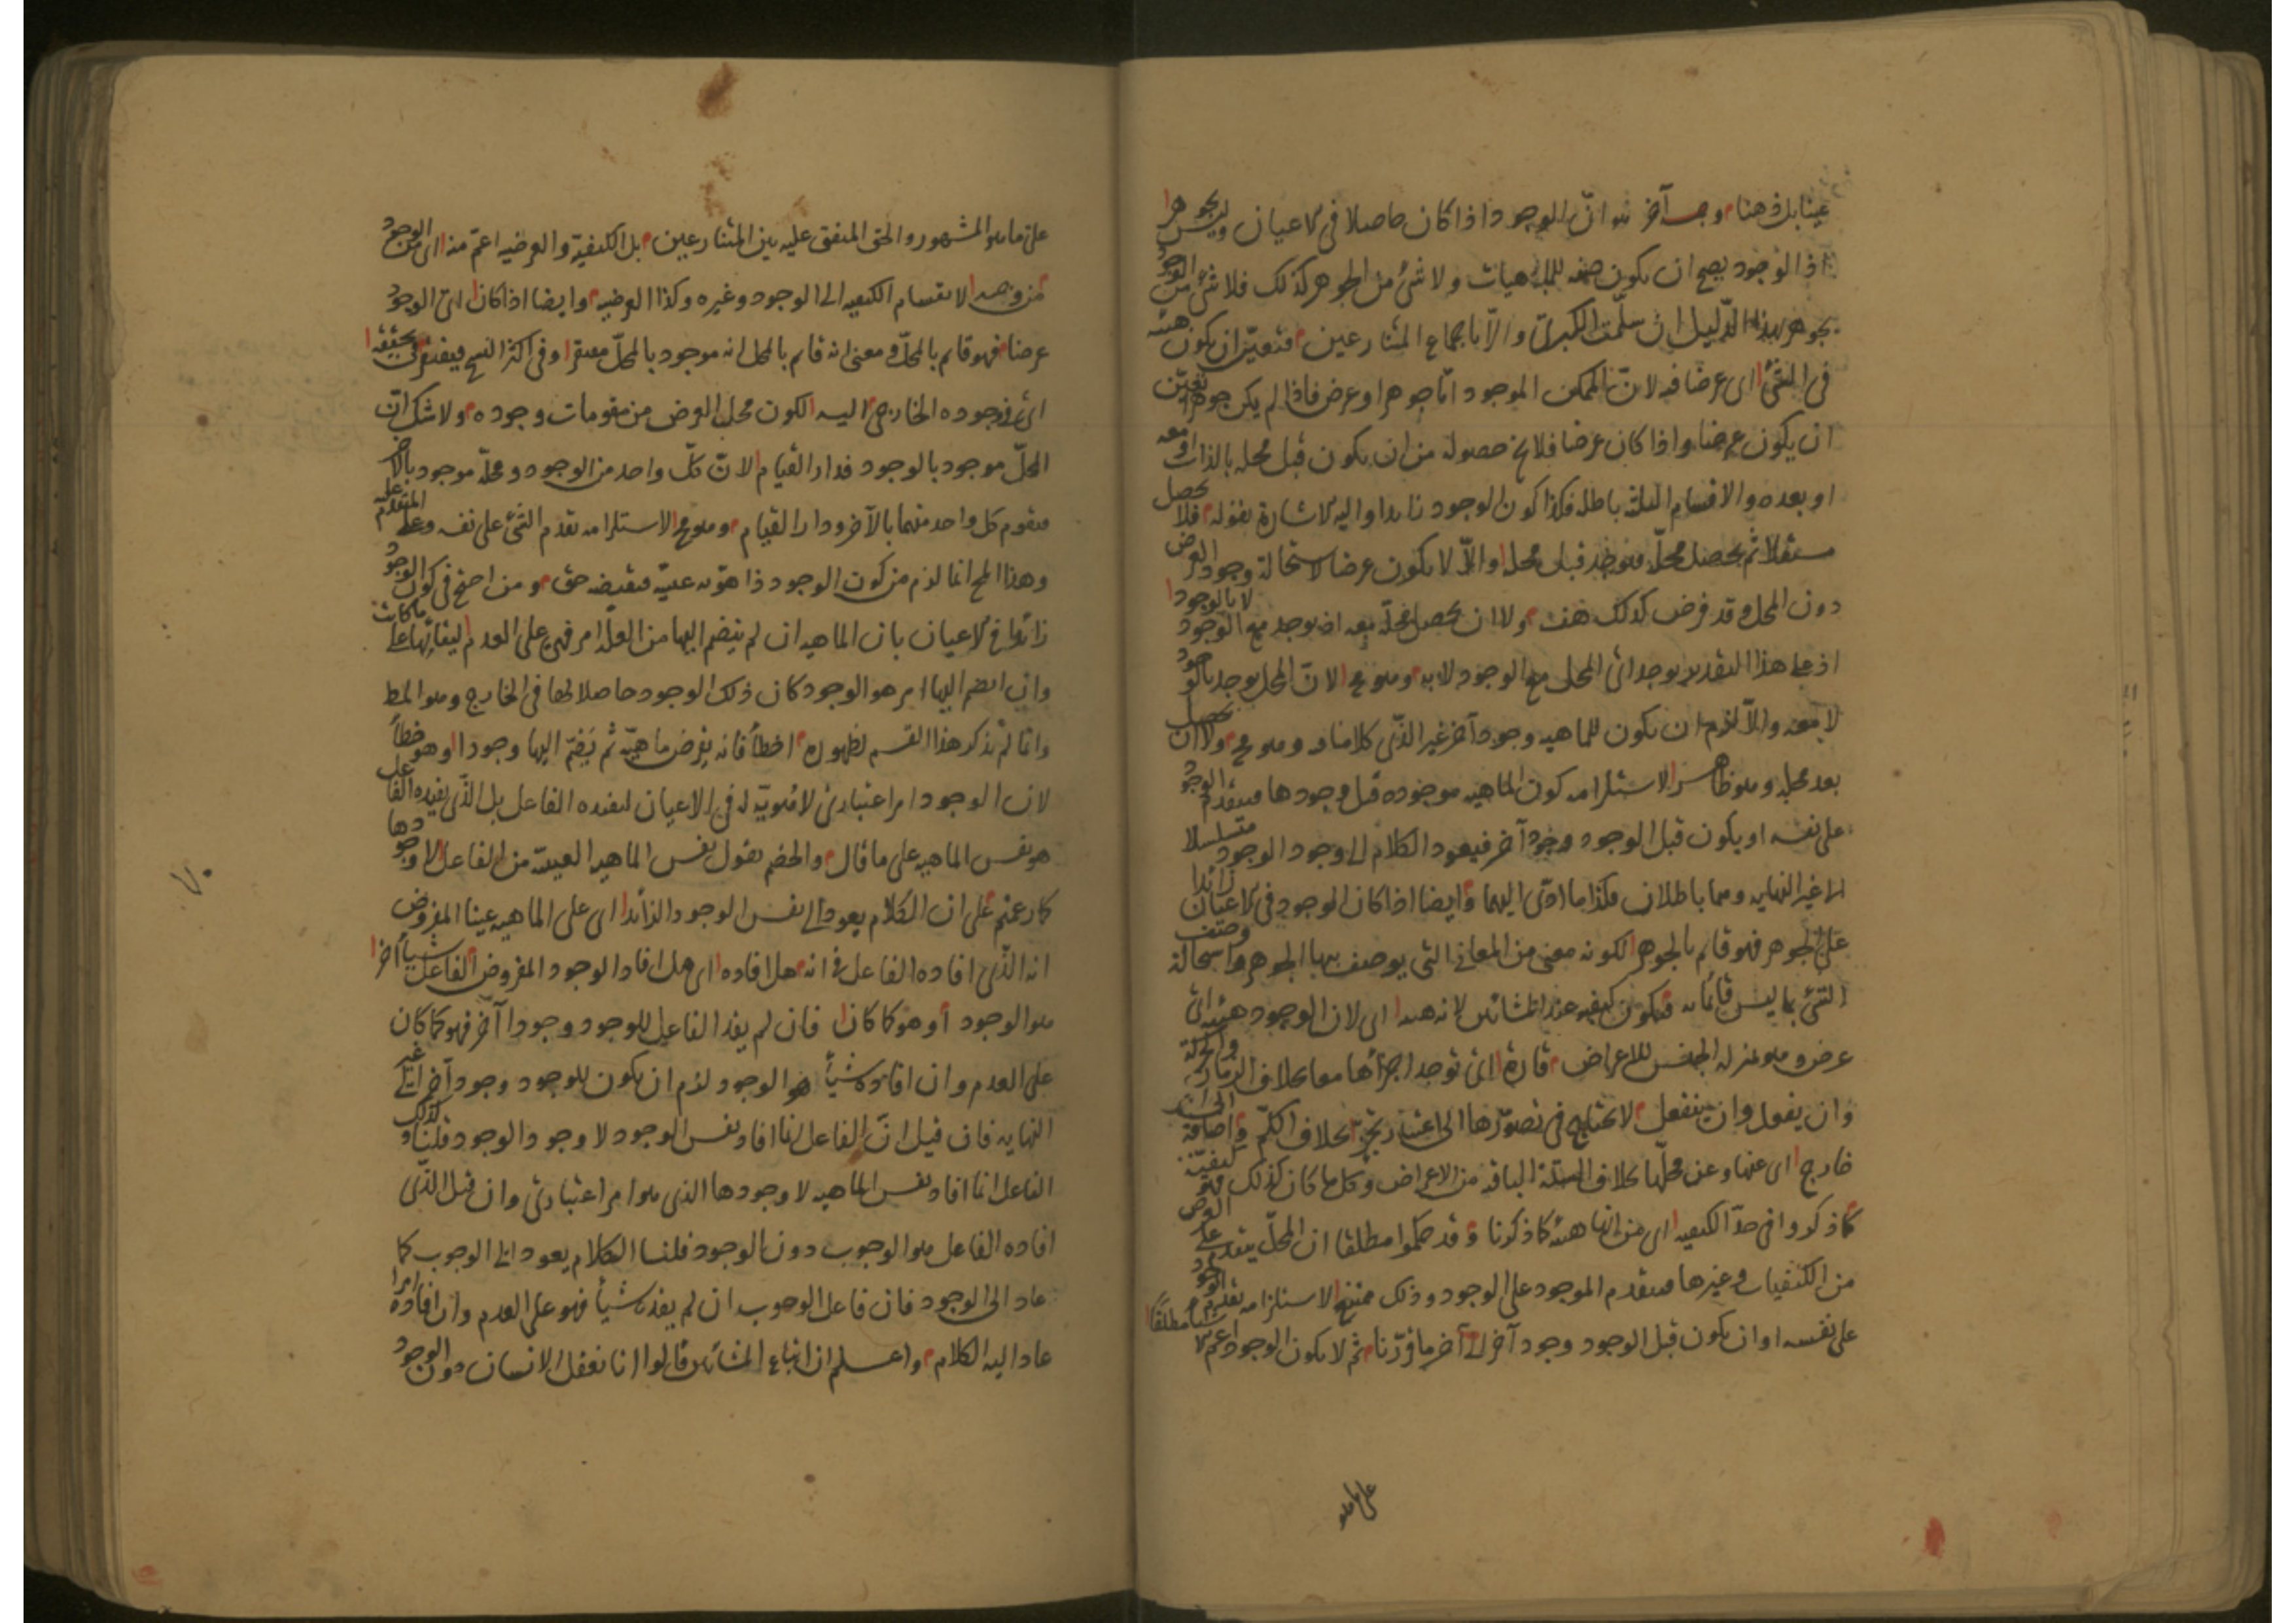 عينا بل ذهنا وجه آخر هو انّ الوجود اذا كان حاصلا فى الاعيان وليس بجوهر
اذ الوجود يصح ان يكون صفه للماهيات ولا شئ من الجوهر كذلك فلا شئ من الوجود
بجوهر بهذا الدّليل ان سلّمت الكبرى والّا باجماع المتنازعين فتعيّن ان يكون هيئه
فى الشئ اى عرضا فيه لانّ الممكن الموجود امّا جوهر او عرض فاذا لم يكن جوهرا تعيّن
ان يكون عرضا واذا كان عرضا فلا يخ حصوله من ان يكون قبل محله بالذات او معه
او بعده والاقسام الثلثه باطله فكذا كون الوجود زايدا واليه الاشارة بقوله فلا يحصل
مستقلا ثم يحصل محلّه فيوجد قبل محله والّا لا يكون عرضا لاستحالة وجود العرض
دون المحل وقد فرض كذلك هف ولا ان يحصل محلّه معه اذ يوجد مع الوجود لا بالوجود
اذ على هذا التقدير يوجد اى المحل مع الوجود لا به وهو مح لانّ المحل يوجد بالوجود
لا معه والّا لزم ان يكون للماهيه وجود آخر غير الذّى كلامنا فيه وهو مح ولا ان يحصل
بعد محله وهو ظاهر لاستلزامه كون الماهيه موجوده قبل وجودها فيتقدم الوجود
على نفسه او يكون قبل الوجود وجود آخر فيعود الكلام الى وجود الوجود متسلسلا
الى غير النهايه وهما باطلان فكذا ما ادّى اليهما وايضا اذا كان الوجود فى الاعيان زائدا
على الجوهر فهو قائم بالجوهر لكونه معنى من المعانى التى يوصف بها الجوهر واستحالة وصف
الشئ بما ليس قائما به فيكون كيفيه عند المشائين لانه هيئه اى لان الوجود هيئه اى
عرض وهو بمنزله الجنس للاعراض قارة اى توجد اجزاؤها معا بخلاف الزمان والحركة
وان يفعل وان ينفعل لا يحتاج فى تصوّرها الى اعتبار تجزّ بخلاف الكمّ واضافة الى امر
خارج اى عنها وعن محلّها بخلاف الستة الباقيه من الاعراض وكل ما كان كذلك فهو كيفيّة
كما ذكروا فى حدّ الكيفيه اى من انها هيئه كما ذكرنا وقد حكموا مطلقا ان المحلّ يتقدم على العرض
من الكيفيات وغيرها فيتقدم الموجود على الوجود وذلك ممتنع لاستلزامه تقدم الوجود
على نفسه او ان يكون قبل الوجود وجود آخر الى آخر ما قرّرنا ثم لا يكون الوجود اعم الاشياء مطلقا
على ما هو
على ما هو المشهور والحق المتفق عليه بين المتنازعين بل الكيفيّة والعرضيه اعمّ منه اى من الوجود
من وجه لانقسام الكيفيه الى الوجود وغيره وكذا العرضيه وايضا اذا كان اى الوجود
عرضا فهو قائم بالمحلّ ومعنى انه قائم بالمحل انه موجود بالمحلّ مفتقرا وفى اكثر النسخ فيفتقر فى تحقّقه
اى فى وجوده الخارجى اليه لكون محل العرض من مقومات وجوده ولا شك انّ
المحلّ موجود بالوجود فدار القيام لانّ كلّ واحد من الوجود ومحلّه موجود بالآخر
فيقوم كل واحد منهما بالآخر ودار القيام وهو مح لاستلزامه تقدم الشئ على نفسه وعلى المتقدم عليه
وهذا المح انما لزم من كون الوجود ذا هويّه عينيّه فنقيضه حق ومن احتج فى كون الوجود
زائدا فى الاعيان بان الماهيه ان لم ينضم اليها من العلّه امر فهى على العدم لبقائها على ما كانت
وان انضم اليها امر هو الوجود كان ذلك الوجود حاصلا لها فى الخارج وهو المط
وانما لم يذكر هذا القسم لظهوره اخطأ فانه يفرض ماهيّة ثم يضمّ اليها وجودا وهو خطأ
لان الوجود امر اعتبارى لا هويّه له فى الاعيان ليفيده الفاعل بل الذّى يفيده الفاعل
هو نفس الماهيه على ما قال والخصم يقول نفس الماهيه العينيّه من الفاعل لا وجودها
كما زعمتم على ان الكلام يعود الى نفس الوجود الزائد اى على الماهيه عينا المفروض
انه الذّى افاده الفاعل فى انه هل افاده اى هل افاد الوجود المفروض الفاعل شيأ آخرا
هو الوجود او هو كما كان فان لم يفد الفاعل للوجود وجودا آخر فهو كما كان
على العدم وان افاده شيأ هو الوجود لزم ان يكون للوجود وجود آخر الى غير
النهايه فان قيل انّ الفاعل انما افاد نفس الوجود لا وجود الوجود قلنا وكذلك
الفاعل انما افاد نفس الماهيه لا وجودها الذى هو امر اعتبارى وان قيل الذّى
افاده الفاعل هو الوجوب دون الوجود قلنا الكلام يعود الى الوجوب كما
عاد الى الوجود فان فاعل الوجوب ان لم يفده شيأ فهو على العدم وان افاده امرا
عاد اليه الكلام واعلم ان اتباع المشائين قالوا انا نعقل الانسان دون الوجود